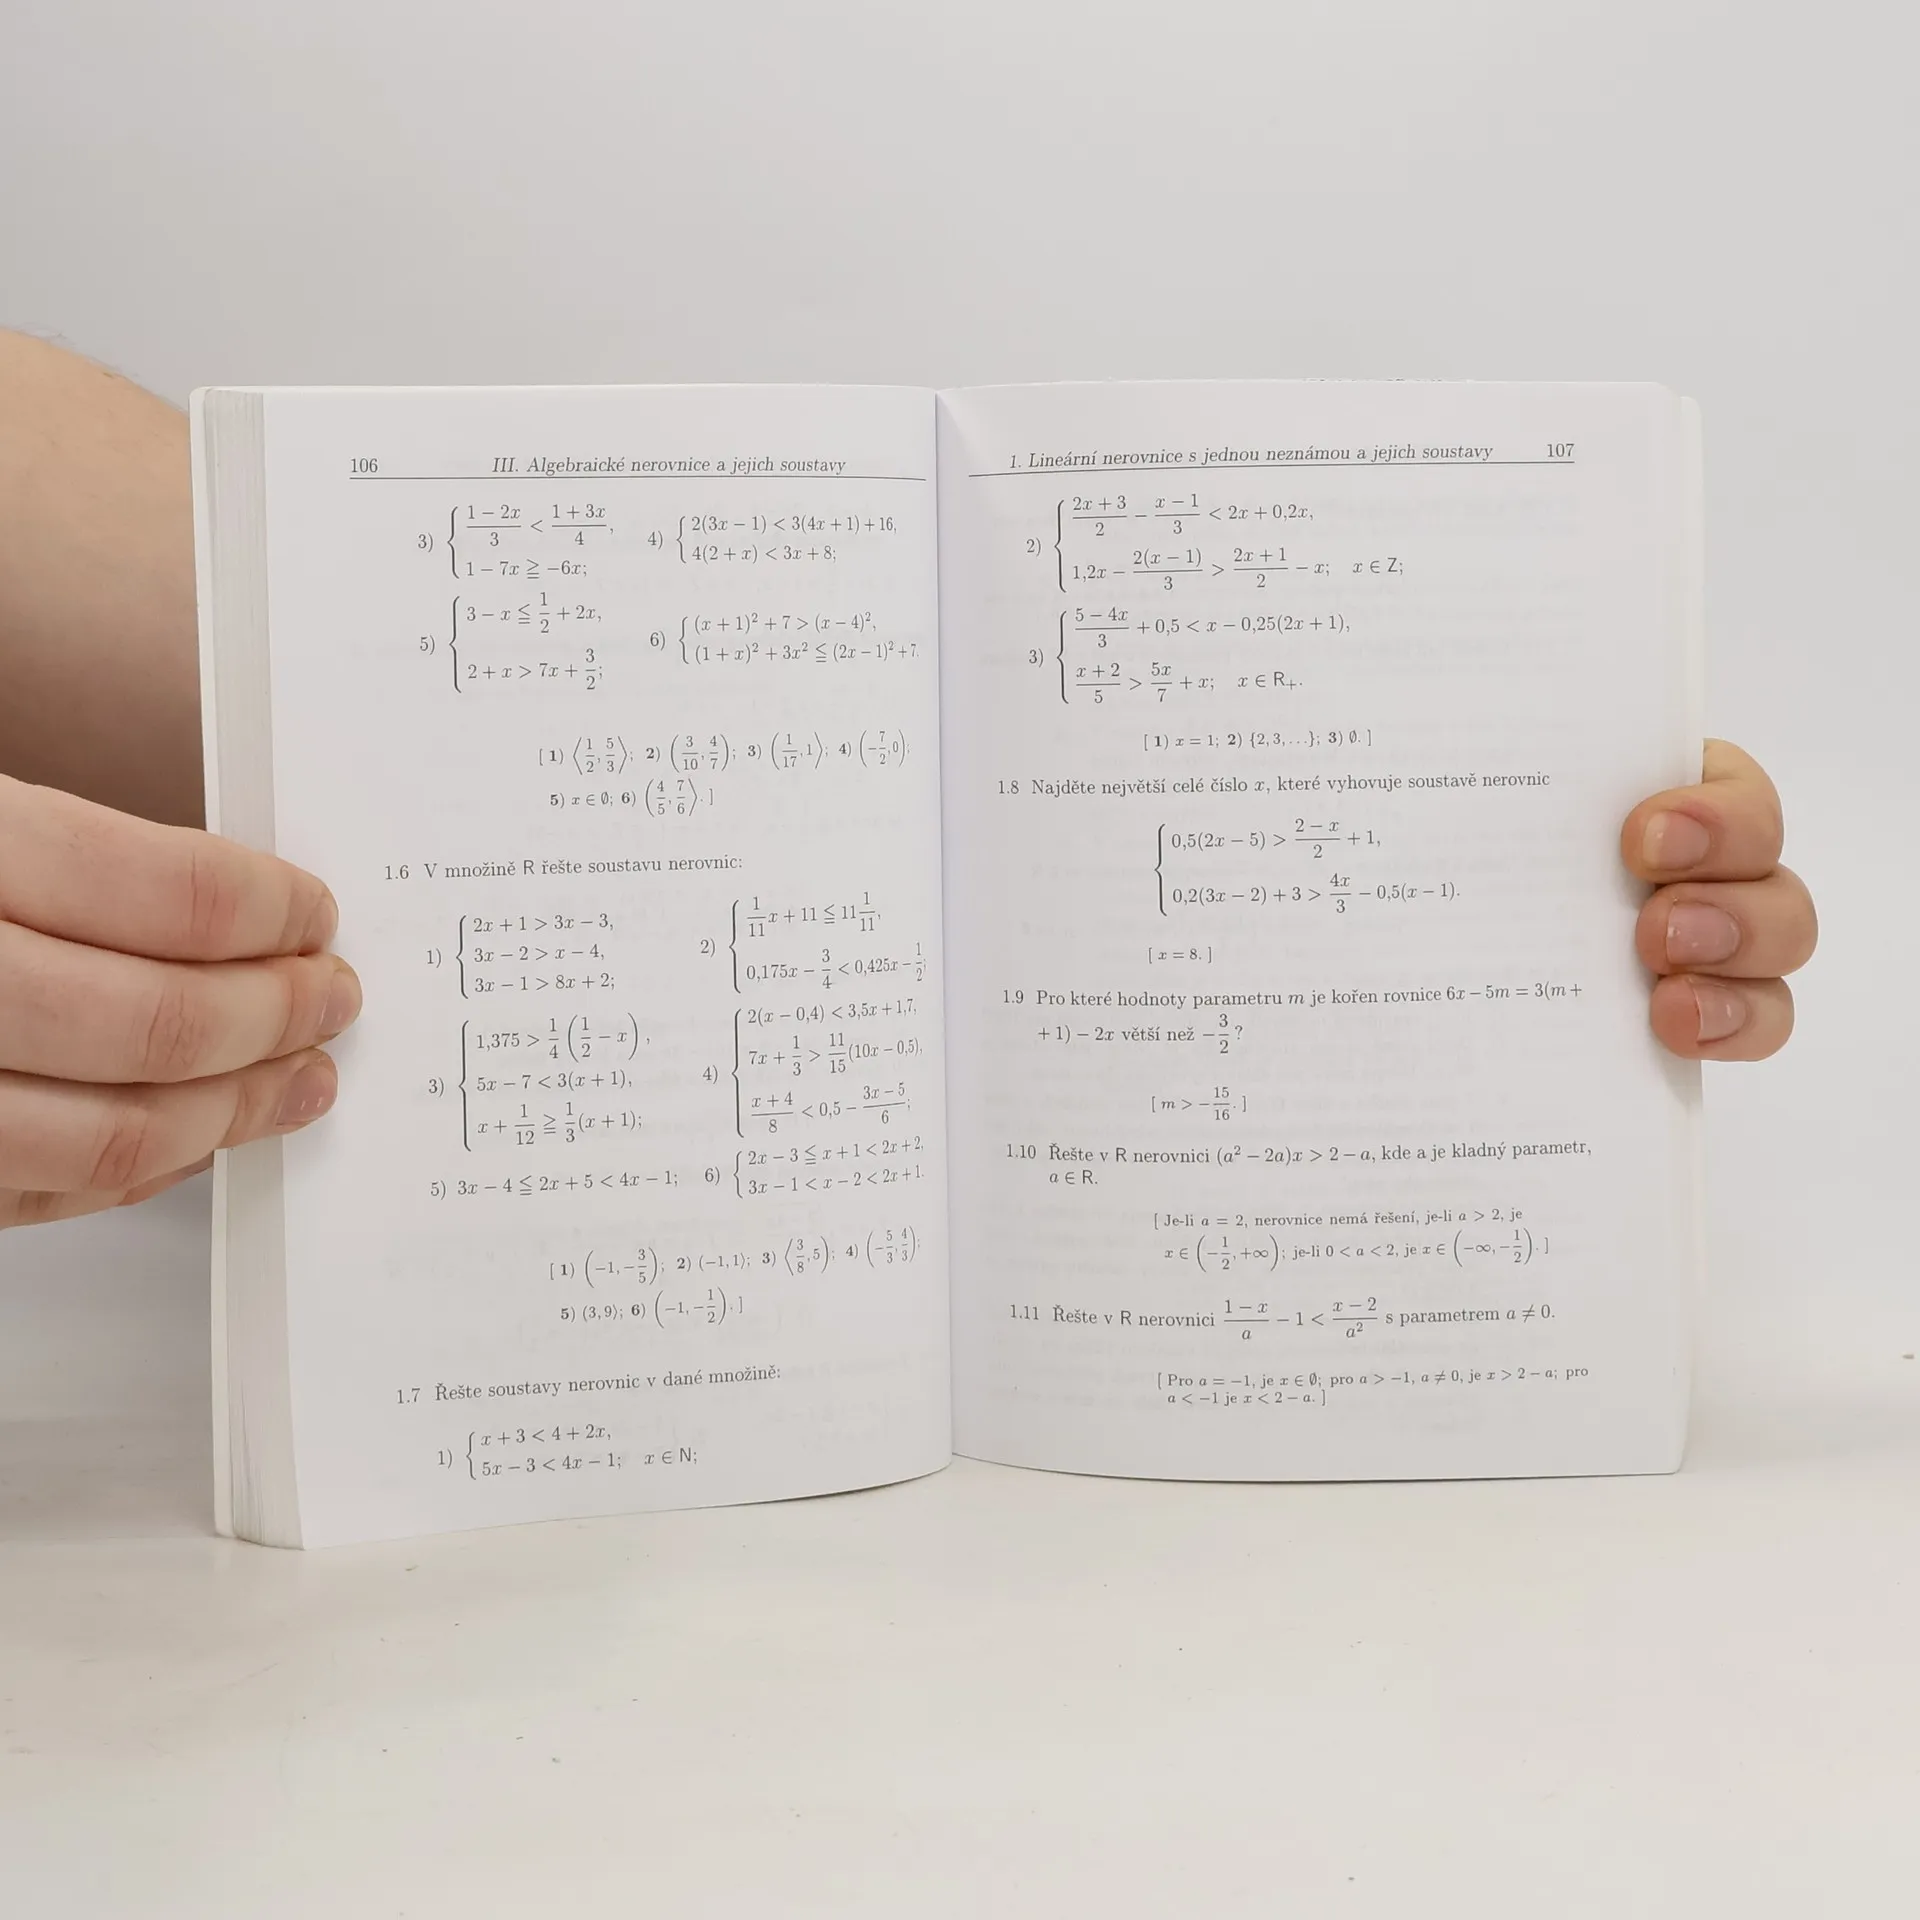 106 III. Algebraické nerovnice a jejich soustavy
3) { (1 − 2x)/3 < (1 + 3x)/4, 4) { 2(3x − 1) < 3(4x + 1) + 16,
1 − 7x ≧ −6x; 4(2 + x) < 3x + 8;
5) { 3 − x ≦ 1/2 + 2x, 6) { (x + 1)² + 7 > (x − 4)²,
2 + x > 7x + 3/2; (1 + x)² + 3x² ≦ (2x − 1)² + 7.
[ 1) ⟨1/2, 5/3⟩; 2) (3/10, 4/7); 3) (1/17, 1⟩; 4) (−7/2, 0);
5) x ∈ ∅; 6) (4/5, 7/6⟩. ]
1.6 V množině R řešte soustavu nerovnic:
1) { 2x + 1 > 3x − 3, 2) { 1/11 x + 11 ≦ 11 1/11,
3x − 2 > x − 4, 0,175x − 3/4 < 0,425x − 1/2;
3x − 1 > 8x + 2;
3) { 1,375 > 1/4 (1/2 − x), 4) { 2(x − 0,4) < 3,5x + 1,7,
5x − 7 < 3(x + 1), 7x + 1/3 > 11/15 (10x − 0,5),
x + 1/12 ≧ 1/3 (x + 1); (x + 4)/8 < 0,5 − (3x − 5)/6;
5) 3x − 4 ≦ 2x + 5 < 4x − 1; 6) { 2x − 3 ≦ x + 1 < 2x + 2,
3x − 1 < x − 2 < 2x + 1.
[ 1) (−1, −3/5); 2) (−1, 1⟩; 3) ⟨3/8, 5); 4) (−5/3, 4/3);
5) (3, 9⟩; 6) (−1, −1/2). ]
1.7 Řešte soustavy nerovnic v dané množině:
1) { x + 3 < 4 + 2x,
5x − 3 < 4x − 1; x ∈ N;
1. Lineární nerovnice s jednou neznámou a jejich soustavy 107
2) { (2x + 3)/2 − (x − 1)/3 < 2x + 0,2x,
1,2x − 2(x − 1)/3 > (2x + 1)/2 − x; x ∈ Z;
3) { (5 − 4x)/3 + 0,5 < x − 0,25(2x + 1),
(x + 2)/5 > 5x/7 + x; x ∈ R₊.
[ 1) x = 1; 2) {2, 3, …}; 3) ∅. ]
1.8 Najděte největší celé číslo x, které vyhovuje soustavě nerovnic
{ 0,5(2x − 5) > (2 − x)/2 + 1,
0,2(3x − 2) + 3 > 4x/3 − 0,5(x − 1).
[ x = 8. ]
1.9 Pro které hodnoty parametru m je kořen rovnice 6x − 5m = 3(m +
+ 1) − 2x větší než −3/2 ?
[ m > −15/16. ]
1.10 Řešte v R nerovnici (a² − 2a)x > 2 − a, kde a je kladný parametr,
a ∈ R.
[ Je-li a = 2, nerovnice nemá řešení, je-li a > 2, je
x ∈ (−1/2, +∞); je-li 0 < a < 2, je x ∈ (−∞, −1/2). ]
1.11 Řešte v R nerovnici (1 − x)/a − 1 < (x − 2)/a² s parametrem a ≠ 0.
[ Pro a = −1, je x ∈ ∅; pro a > −1, a ≠ 0, je x > 2 − a; pro
a < −1 je x < 2 − a. ]